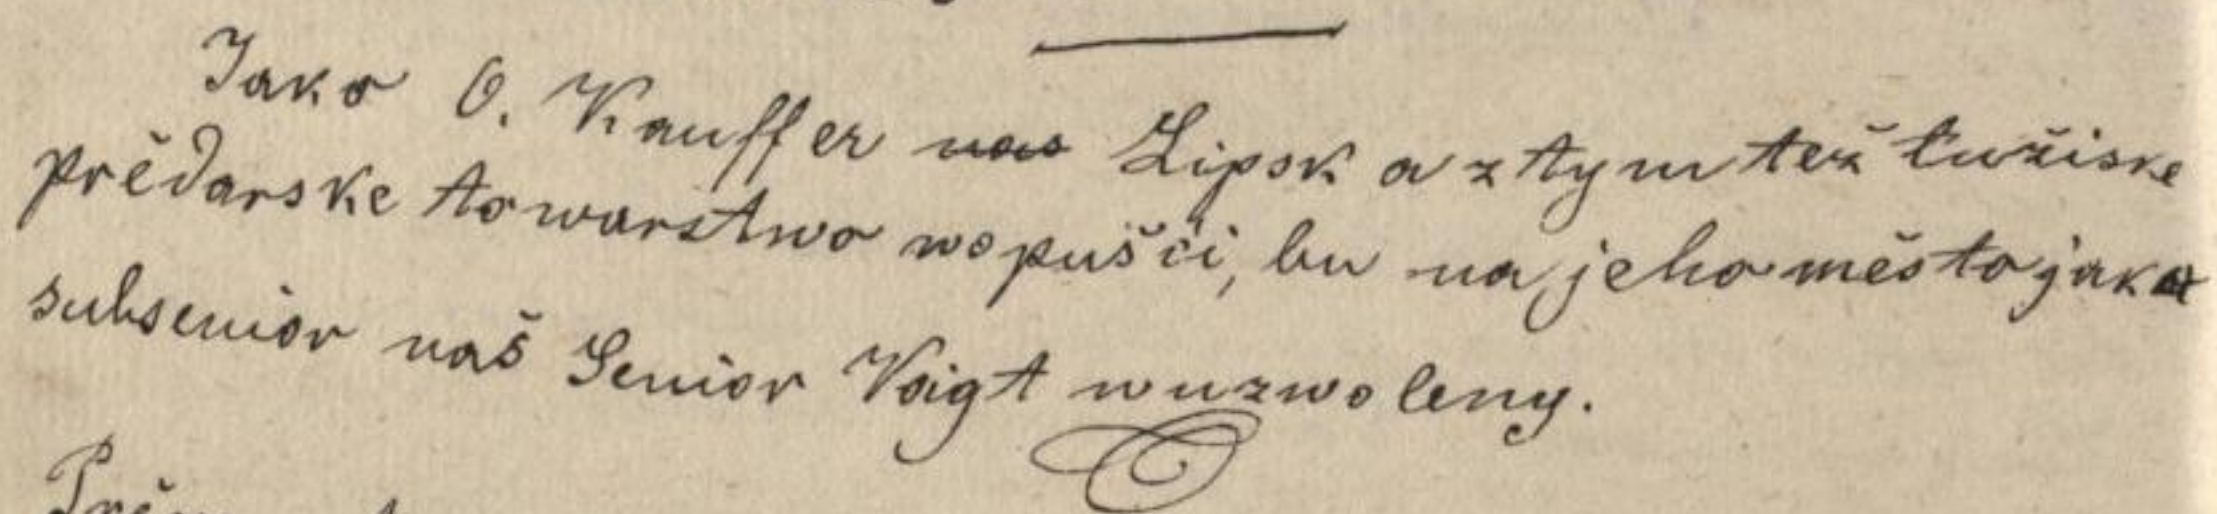 Jako O. Kauffer nas Lipsk a z tym tež łužiske
prědarske towarstwo wopušći, bu na jeho město jako
subsenior naš Senior Voigt wuzwoleny.